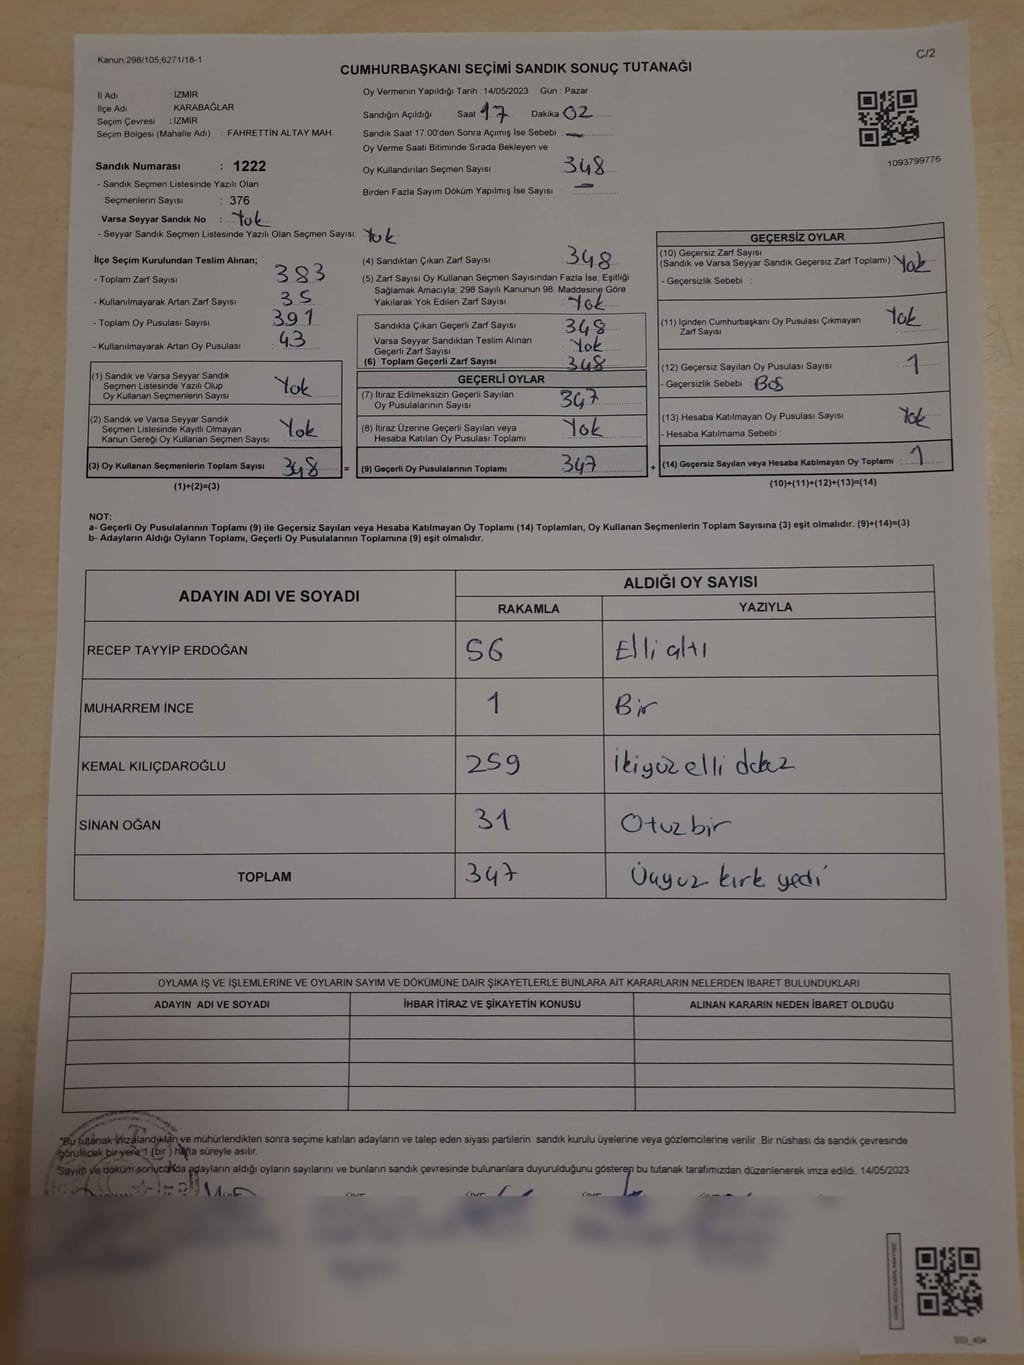 Kanun.298/105,6271/18-1
C/2
CUMHURBAŞKANI SEÇİMİ SANDIK SONUÇ TUTANAĞI
İl Adı : İZMİR
İlçe Adı : KARABAĞLAR
Seçim Çevresi : İZMİR
Seçim Bölgesi (Mahalle Adı) : FAHRETTİN ALTAY MAH.
Sandık Numarası : 1222
- Sandık Seçmen Listesinde Yazılı Olan
Seçmenlerin Sayısı : 376
Varsa Seyyar Sandık No : Yok
- Seyyar Sandık Seçmen Listesinde Yazılı Olan Seçmen Sayısı: Yok
Oy Vermenin Yapıldığı Tarih :14/05/2023 Gün : Pazar
Sandığın Açıldığı Saat 17 Dakika 02
Sandık Saat 17:00'den Sonra Açımış İse Sebebi : —
Oy Verme Saati Bitiminde Sırada Bekleyen ve
Oy Kullandırılan Seçmen Sayısı 348
Birden Fazla Sayım Döküm Yapılmış İse Sayısı : —
1093799776
İlçe Seçim Kurulundan Teslim Alınan;
- Toplam Zarf Sayısı 383
- Kullanılmayarak Artan Zarf Sayısı : 35
- Toplam Oy Pusulası Sayısı : 391
- Kullanılmayarak Artan Oy Pusulası : 43
(1) Sandık ve Varsa Seyyar Sandık
Seçmen Listesinde Yazılı Olup
Oy Kullanan Seçmenlerin Sayısı Yok
(2) Sandık ve Varsa Seyyar Sandık
Seçmen Listesinde Kayıtlı Olmayan
Kanun Gereği Oy Kullanan Seçmen Sayısı Yok
(3) Oy Kullanan Seçmenlerin Toplam Sayısı 348
(1)+(2)=(3)
=
(4) Sandıktan Çıkan Zarf Sayısı : 348
(5) Zarf Sayısı Oy Kullanan Seçmen Sayısından Fazla İse, Eşitliği
Sağlamak Amacıyla; 298 Sayılı Kanunun 98. Maddesine Göre
Yakılarak Yok Edilen Zarf Sayısı : Yok
Sandıkta Çıkan Geçerli Zarf Sayısı : 348
Varsa Seyyar Sandıktan Teslim Alınan
Geçerli Zarf Sayısı : Yok
(6) Toplam Geçerli Zarf Sayısı : 348
GEÇERLİ OYLAR
(7) İtiraz Edilmeksizin Geçerli Sayılan
Oy Pusulalarının Sayısı 347
(8) İtiraz Üzerine Geçerli Sayılan veya
Hesaba Katılan Oy Pusulası Toplamı Yok
(9) Geçerli Oy Pusulalarının Toplamı 347
+
GEÇERSİZ OYLAR
(10) Geçersiz Zarf Sayısı
(Sandık ve Varsa Seyyar Sandık Geçersiz Zarf Toplamı) Yok
- Geçersizlik Sebebi :
(11) İçinden Cumhurbaşkanı Oy Pusulası Çıkmayan
Zarf Sayısı Yok
(12) Geçersiz Sayılan Oy Pusulası Sayısı 1
- Geçersizlik Sebebi : Boş
(13) Hesaba Katılmayan Oy Pusulası Sayısı Yok
- Hesaba Katılmama Sebebi :
(14) Geçersiz Sayılan veya Hesaba Katılmayan Oy Toplamı : 1
(10)+(11)+(12)+(13)=(14)
NOT:
a- Geçerli Oy Pusulalarının Toplamı (9) ile Geçersiz Sayılan veya Hesaba Katılmayan Oy Toplamı (14) Toplamları, Oy Kullanan Seçmenlerin Toplam Sayısına (3) eşit olmalıdır. (9)+(14)=(3)
b- Adayların Aldığı Oyların Toplamı, Geçerli Oy Pusulalarının Toplamına (9) eşit olmalıdır.
ADAYIN ADI VE SOYADI
ALDIĞI OY SAYISI
RAKAMLA YAZIYLA
RECEP TAYYİP ERDOĞAN 56 Elli altı
MUHARREM İNCE 1 Bir
KEMAL KILIÇDAROĞLU 259 İkiyüz elli dokuz
SİNAN OĞAN 31 Otuz bir
TOPLAM 347 Üçyüz kırk yedi
OYLAMA İŞ VE İŞLEMLERİNE VE OYLARIN SAYIM VE DÖKÜMÜNE DAİR ŞİKAYETLERLE BUNLARA AİT KARARLARIN NELERDEN İBARET BULUNDUKLARI
ADAYIN ADI VE SOYADI İHBAR İTİRAZ VE ŞİKAYETİN KONUSU ALINAN KARARIN NEDEN İBARET OLDUĞU
*Bu tutanak imzalandıktan ve mühürlendikten sonra seçime katılan adayların ve talep eden siyasi partilerin sandık kurulu üyelerine veya gözlemcilerine verilir .Bir nüshası da sandık çevresinde
görülecek bir yere 1 (bir ) hafta süreyle asılır.
Sayım ve döküm sonucunda adayların aldığı oyların sayılarını ve bunların sandık çevresinde bulunanlara duyurulduğunu gösteren bu tutanak tarafımızdan düzenlenerek imza edildi. 14/05/2023